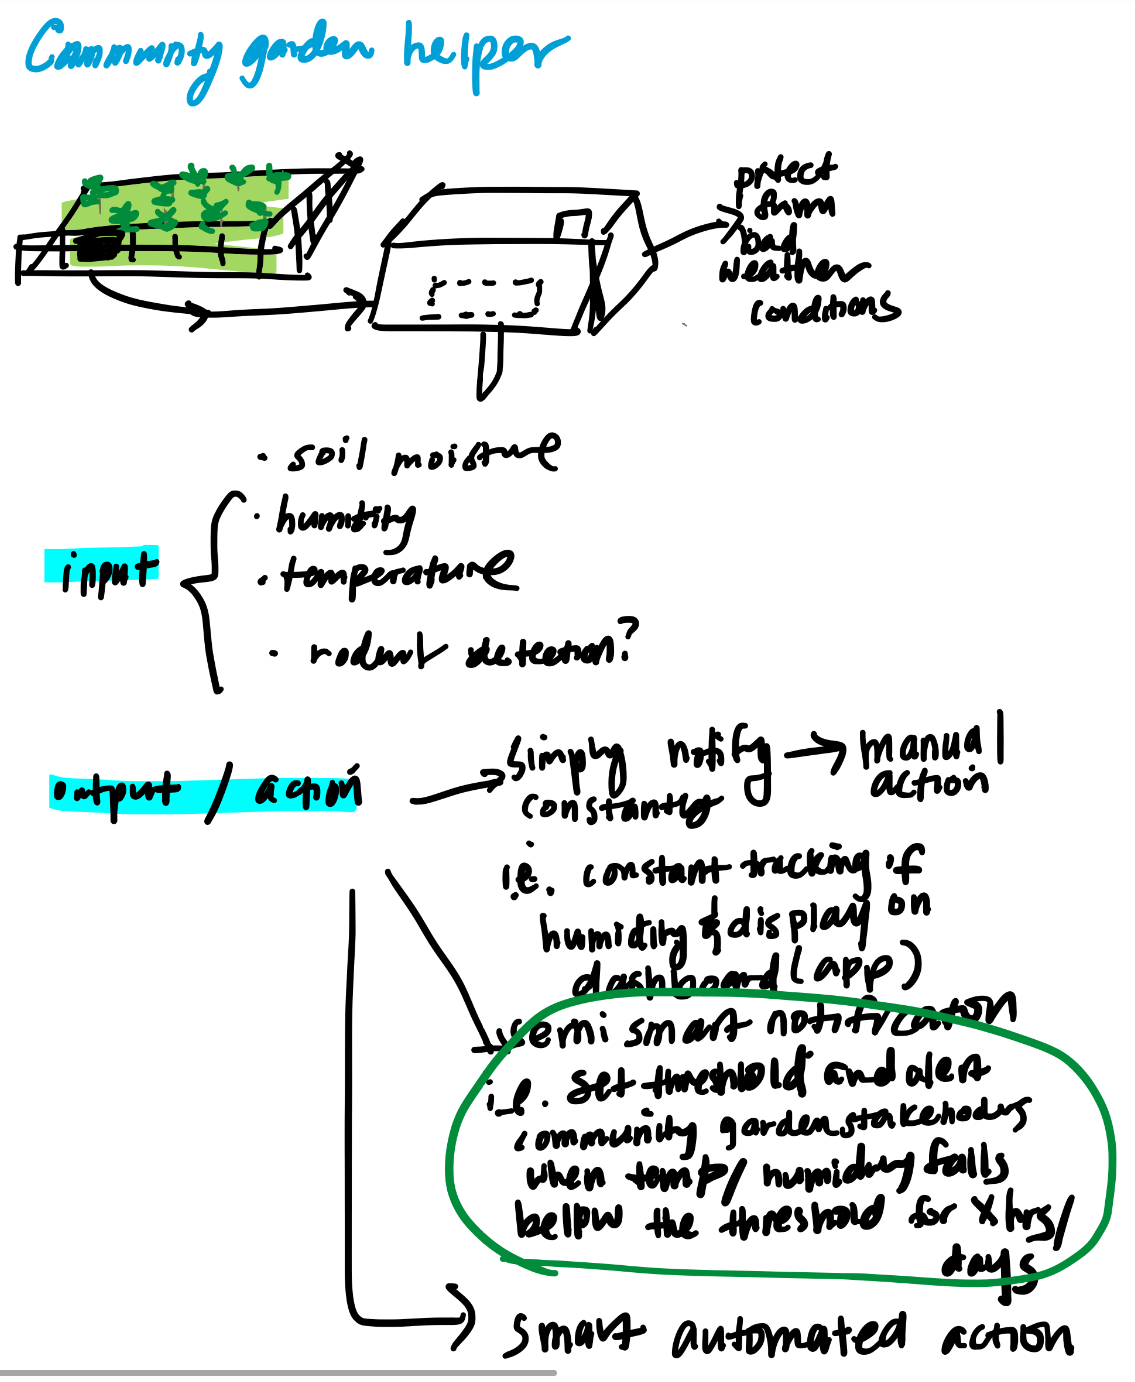 Community garden helper
protect
from
bad
weather
conditions
· soil moisture
· humidity
· temperature
· rodent detection?
input
output / action
simply notify → manual
constantly action
i.e. constant tracking if
humidity & display on
dashboard (app)
semi smart notification
i.e. set threshold and alert
community garden stakehoders
when temp/ humidity falls
below the threshold for X hrs/
days
smart automated action